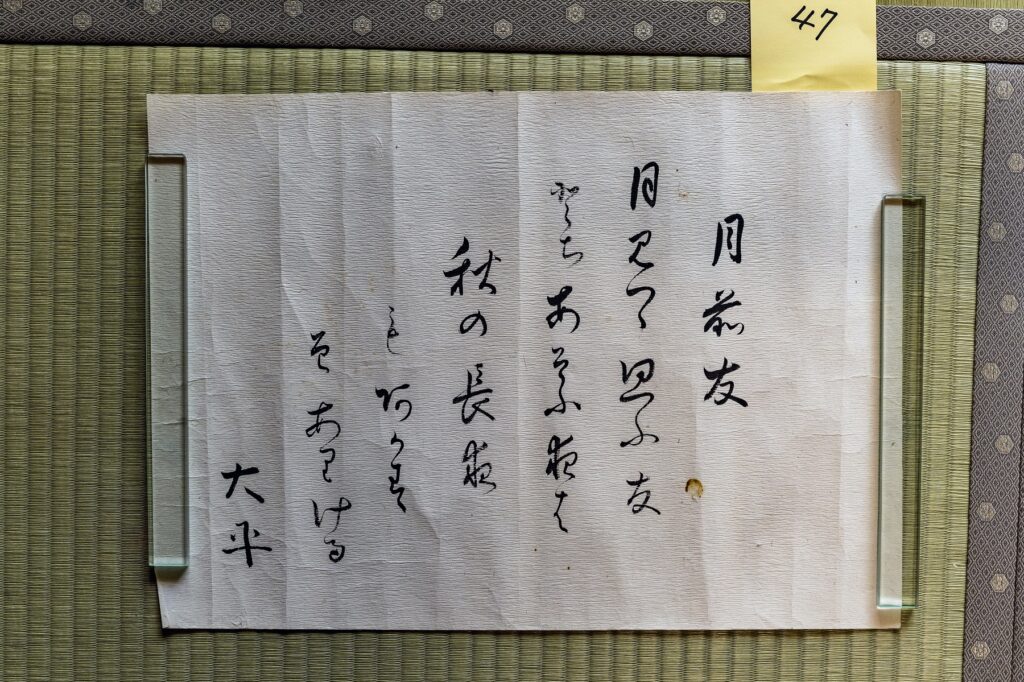 47
月前友
月見つゝ思ふ友
とちあそふ夜は
秋の長夜
もあかす
そありける
大平